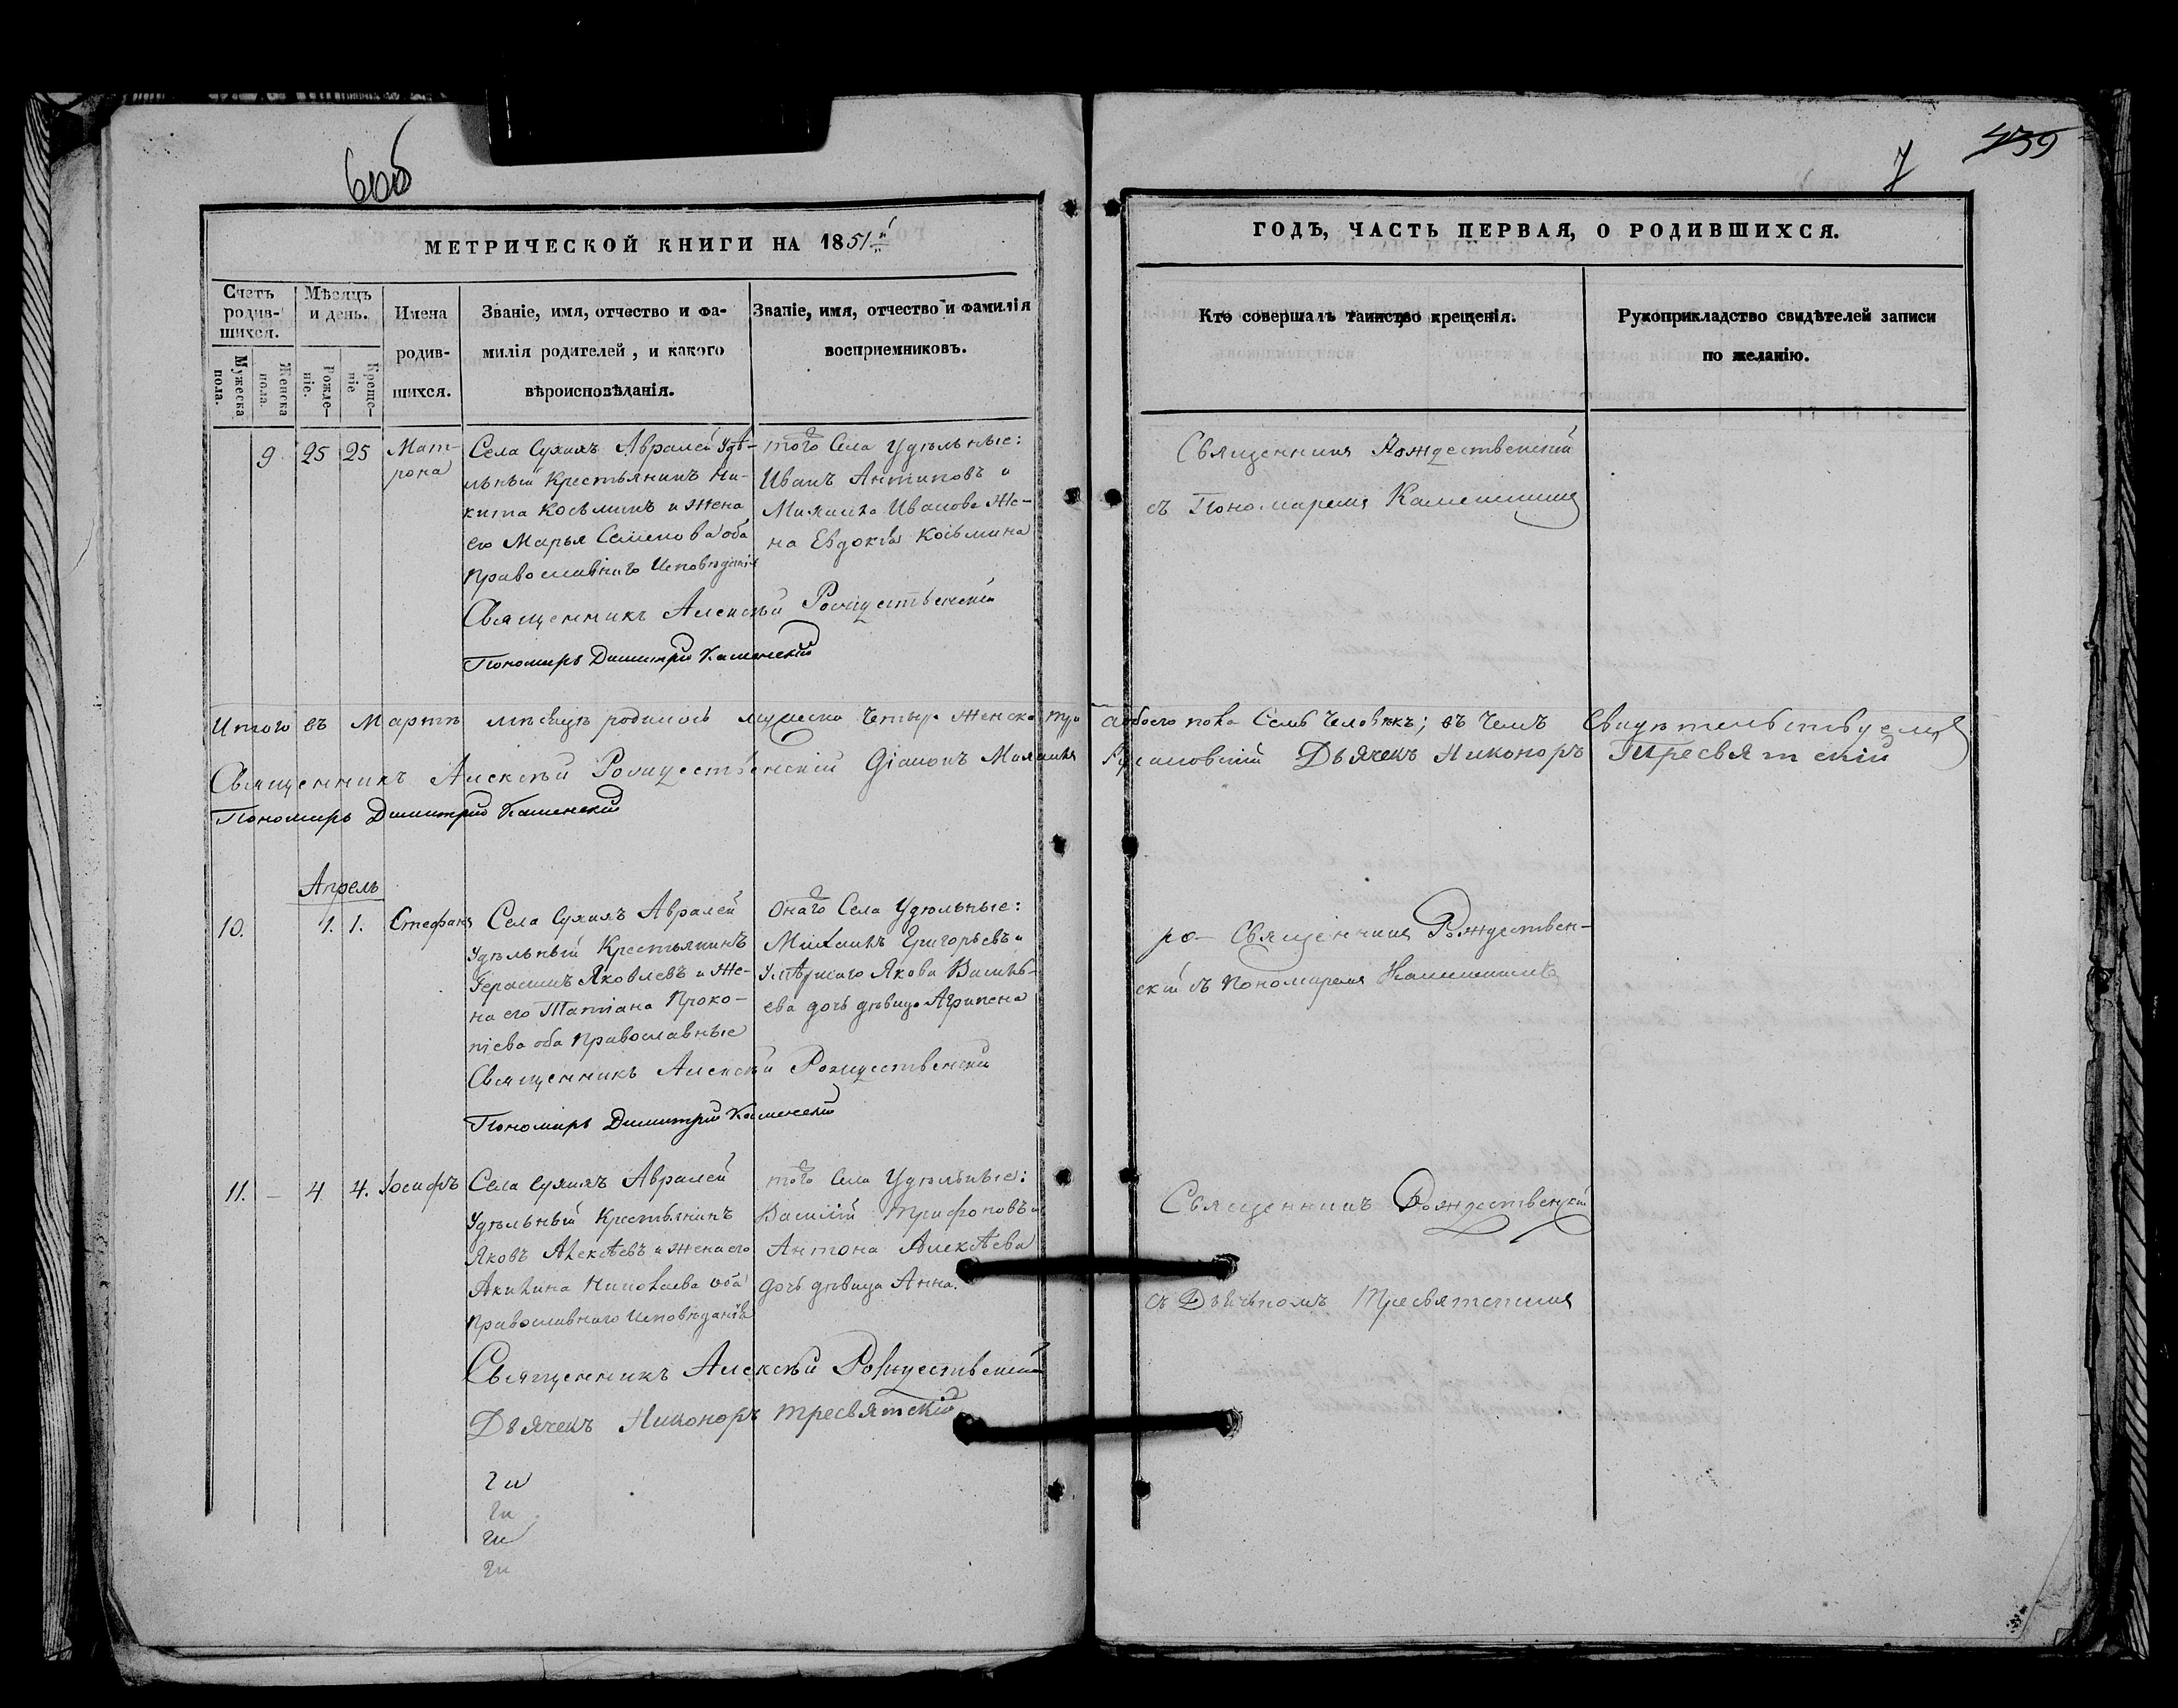 6об
7
439
МЕТРИЧЕСКОЙ КНИГИ НА 1851й
ГОДЪ, ЧАСТЬ ПЕРВАЯ, О РОДИВШИХСЯ.
Счетъ родив-шихся.
Мужеска пола.
Женска пола.
Мѣсяцъ и день.
Рожде-ніе.
Креще-ніе
Имена
родив-
шихся.
Званіе, имя, отчество и фа-
милія родителей, и какого
вѣроисповѣданія.
Званіе, имя, отчество и фамилія
восприемниковъ.
Кто совершалъ таинство крещенія.
Рукоприкладство свидѣтелей записи
по желанію.
9
25
25
Мат-
рона
Села Сухихъ Авралей Удѣ-
льный Крестьянинъ Ни-
кита Косьминъ и жена
его Марья Семенова оба
Православнаго Исповѣданія
того Села Удѣльные:
Иванъ Антиповъ и
Михаила Иванова Же-
на Евдокія Козьмина
Священникъ Рождественскій
съ Пономаремъ Каменскимъ
Священникъ Алексѣй Рождественскій
Пономарь Димитрій Каменскій
Итого въ Мартѣ мѣсяцѣ родилось мужеска Четыре женска три
а обоего пола Семь Человѣкъ; въ Чемъ Свидѣтельствуемъ
Священникъ Алексѣй Рождественскій Діаконъ Михаилъ
Дьячекъ Никоноръ Тресвятскій
Пономарь Димитрій Каменскій
Апрель
10.
1.
1.
Стефанъ
Села Сухихъ Авралей
Удѣльный Крестьянинъ
Герасимъ Яковлевъ и Же-
на его Татіана Проко-
піева оба Православные
Онаго Села Удѣльные:
Михаилъ Григорьевъ и
Умершаго Якова Василь-
ева дочь дѣвица Агрипена
Священникъ Рождествен-
скій съ Пономаремъ Каменскимъ
Священникъ Алексѣй Рождественскій
Пономарь Димитрій Каменскій
11.
–
4
4.
Іосифъ
Села Сухихъ Авралей
Удѣльный Крестьянинъ
Яковъ Алексѣевъ и жена его
Акилина Николаева оба
Православнаго Исповѣданія
того Села Удѣльные:
Василій Трифоновъ и
Антона Алексѣева
дочь дѣвица Анна.
Священникъ Рождественскій
съ Дьячкомъ Тресвятскимъ
Священникъ Алексѣй Рождественскій
Дьячекъ Никоноръ Тресвятскій